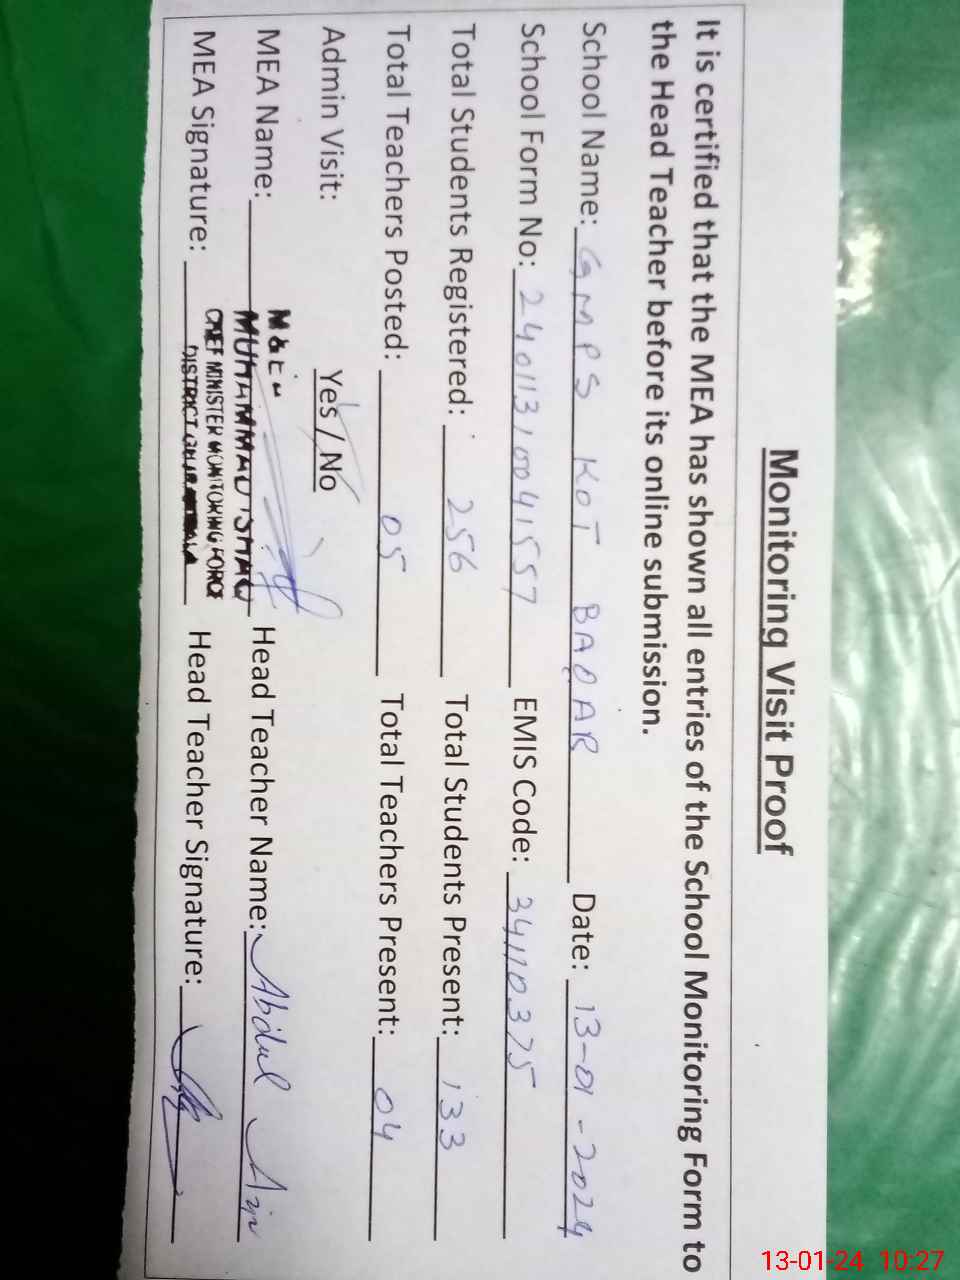 Monitoring Visit Proof
It is certified that the MEA has shown all entries of the School Monitoring Form to
the Head Teacher before its online submission.
School Name: GMPS KOT BAOAR Date: 13-01-2024
School Form No: 24011310041557 EMIS Code: 34110375
Total Students Registered: 256 Total Students Present: 133
Total Teachers Posted: 05 Total Teachers Present: 04
Admin Visit: Yes / No
MEA Name: MUHAMMAD Head Teacher Name: Abdul
CHIEF MINISTER MONITORING FORCE
MEA Signature: DISTRICT Head Teacher Signature:
13-01-24 10:27